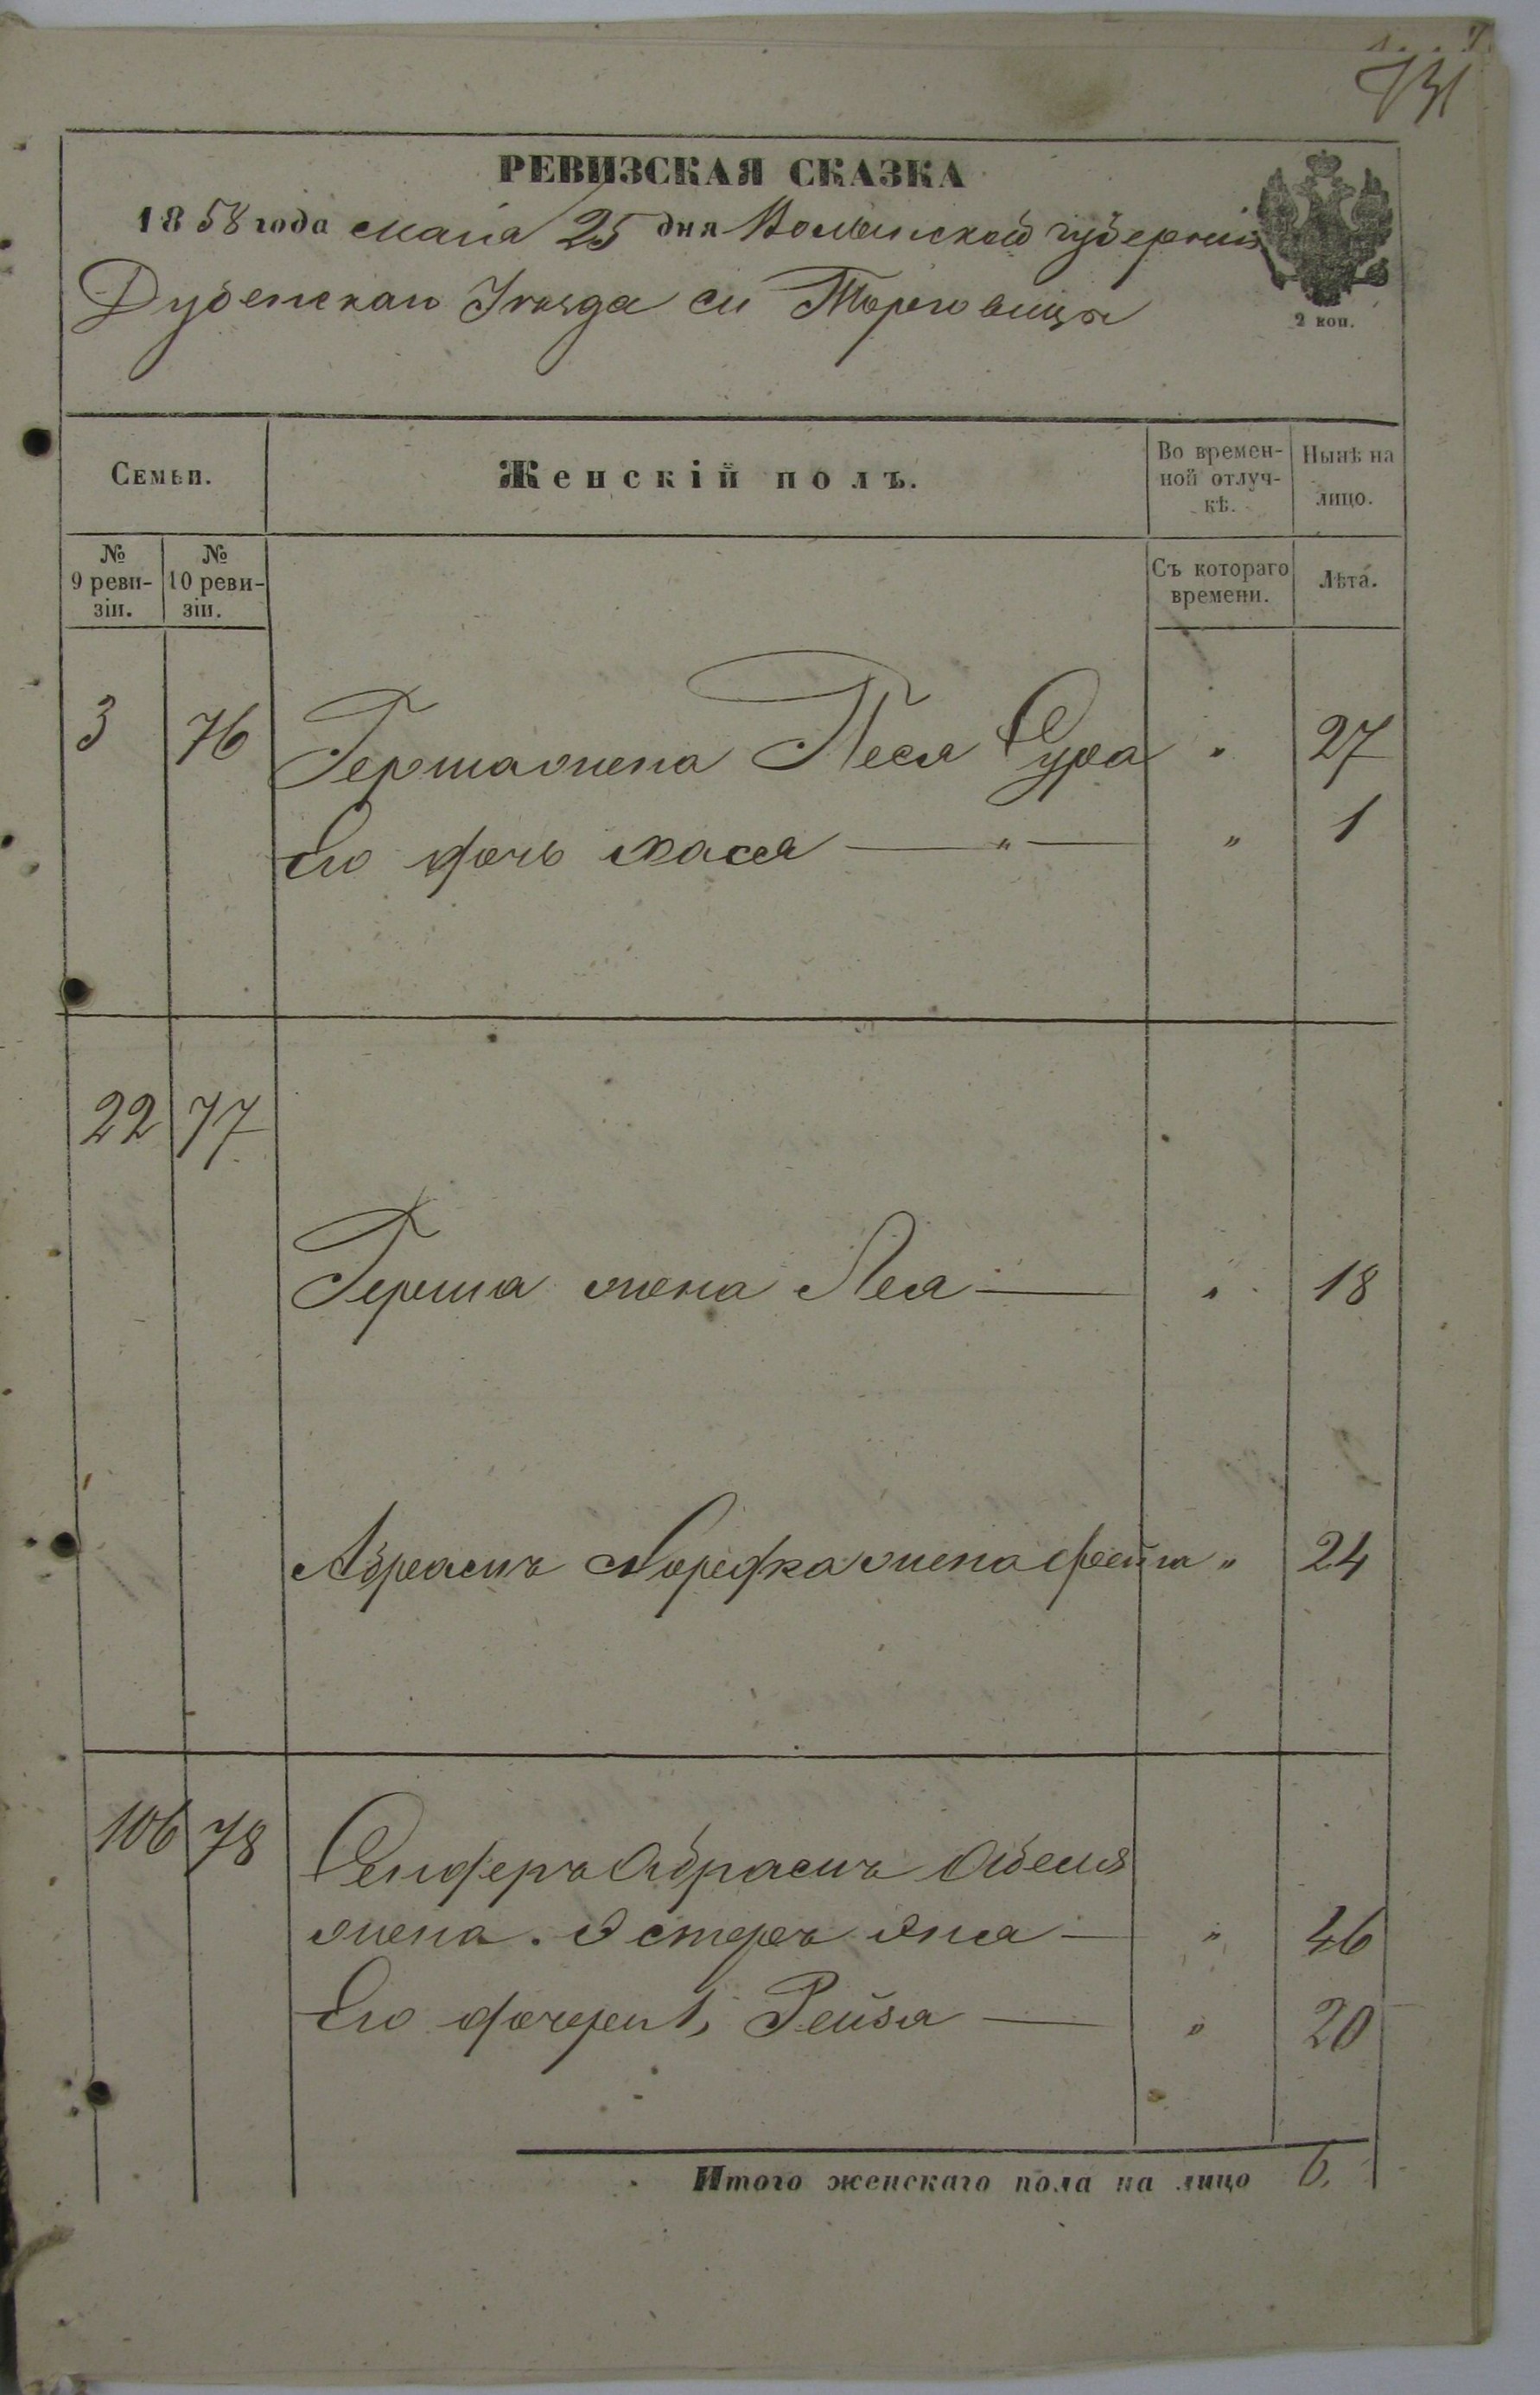 731
РЕВИЗСКАЯ СКАЗКА
1858 года маія 25 дня Волынской губерніи
Дубенскаго Уезда м Торговицы
2 коп.
Семьи.
Женскій полъ.
Во времен-
ной отлуч-
кѣ.
Нынѣ на
лицо.
№
9 реви-
зіи.
№
10 реви-
зіи.
Съ котораго
времени.
Лѣта.
3 76 Герша жена Песя Сура " 27
Его дочь Хася — " — " 1
22 77
Герша жена Лея — " 18
Абрамъ жена Фейга " 24
106 78 Сендеръ Абрамъ
жена. Эстеръ — " 46
Его дочери 1, Рейза — " 20
Итого женскаго пола на лицо 6.